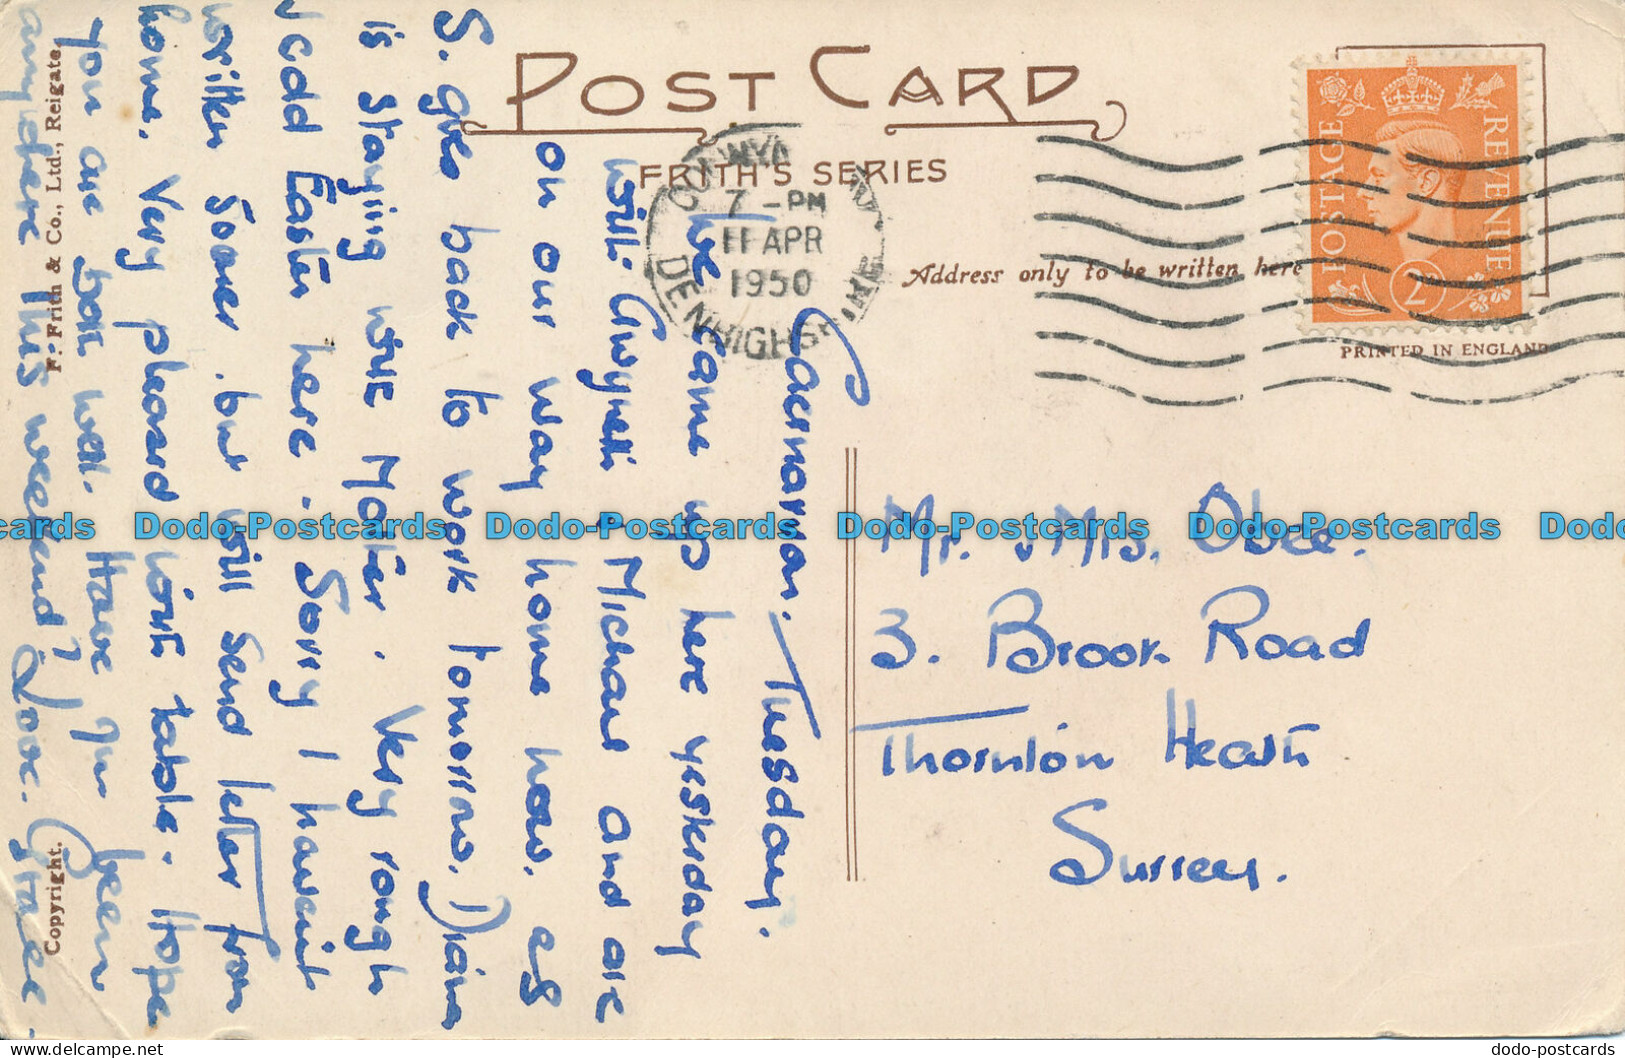 POST CARD
FRITH'S SERIES
Address only to be written here
POSTAGE
REVENUE
PRINTED IN ENGLAND
7 - PM
11 APR
1950
DENBIGHSHIRE
Caernarvon. Tuesday.
We came up here yesterday
with Gwyneth & Michael and are
on our way home now. as
S. goes back to work tomorrow. Diana
is staying with Mother. Very rough
cold Easter here. Sorry I haven't
written sooner. but will send letter from
home. Very pleased with table. Hope
you are both well. Have you been
anywhere this weekend? Love. Grace.
Mr. & Mrs. Obee.
3. Brook Road
Thornton Heath
Surrey.
F. Frith & Co., Ltd., Reigate.
Copyright.
Dodo-Postcards Dodo-Postcards Dodo-Postcards Dodo-Postcards
dodo-postcards.com